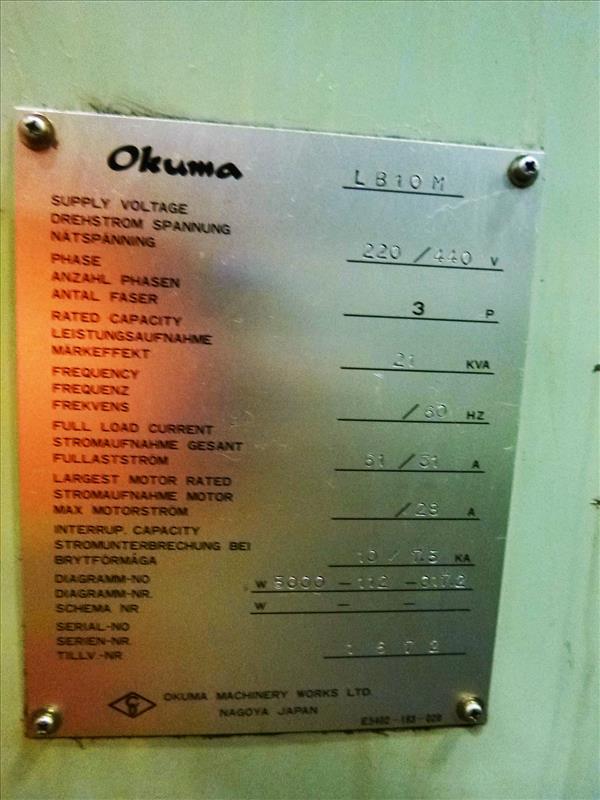 Okuma
LB10M
SUPPLY VOLTAGE
DREHSTROM SPANNUNG
NÄTSPÄNNING
220/440 V
PHASE
ANZAHL PHASEN
ANTAL FASER
3 P
RATED CAPACITY
LEISTUNGSAUFNAHME
MÄRKEFFEKT
21 KVA
FREQUENCY
FREQUENZ
FREKVENS
/60 HZ
FULL LOAD CURRENT
STROMAUFNAHME GESANT
FULLASTSTRÖM
61/31 A
LARGEST MOTOR RATED
STROMAUFNAHME MOTOR
MAX MOTORSTRÖM
/28 A
INTERRUP. CAPACITY
STROMUNTERBRECHUNG BEI
BRYTFÖRMÅGA
10/7.5 KA
DIAGRAMM-NO
DIAGRAMM-NR.
SCHEMA NR
W 5000-112-
W - -
SERIAL-NO
SERIEN-NR.
TILLV.-NR
OKUMA MACHINERY WORKS LTD.
NAGOYA JAPAN
E5402-183-028